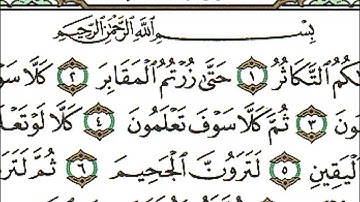 بِسْمِ اللَّهِ الرَّحْمَٰنِ الرَّحِيمِ
كُمُ التَّكَاثُرُ ١ حَتَّىٰ زُرْتُمُ الْمَقَابِرَ ٢ كَلَّا سَوْ
ونَ ٣ ثُمَّ كَلَّا سَوْفَ تَعْلَمُونَ ٤ كَلَّا لَوْ تَعْلَ
الْيَقِينِ ٥ لَتَرَوُنَّ الْجَحِيمَ ٦ ثُمَّ لَتَرَ